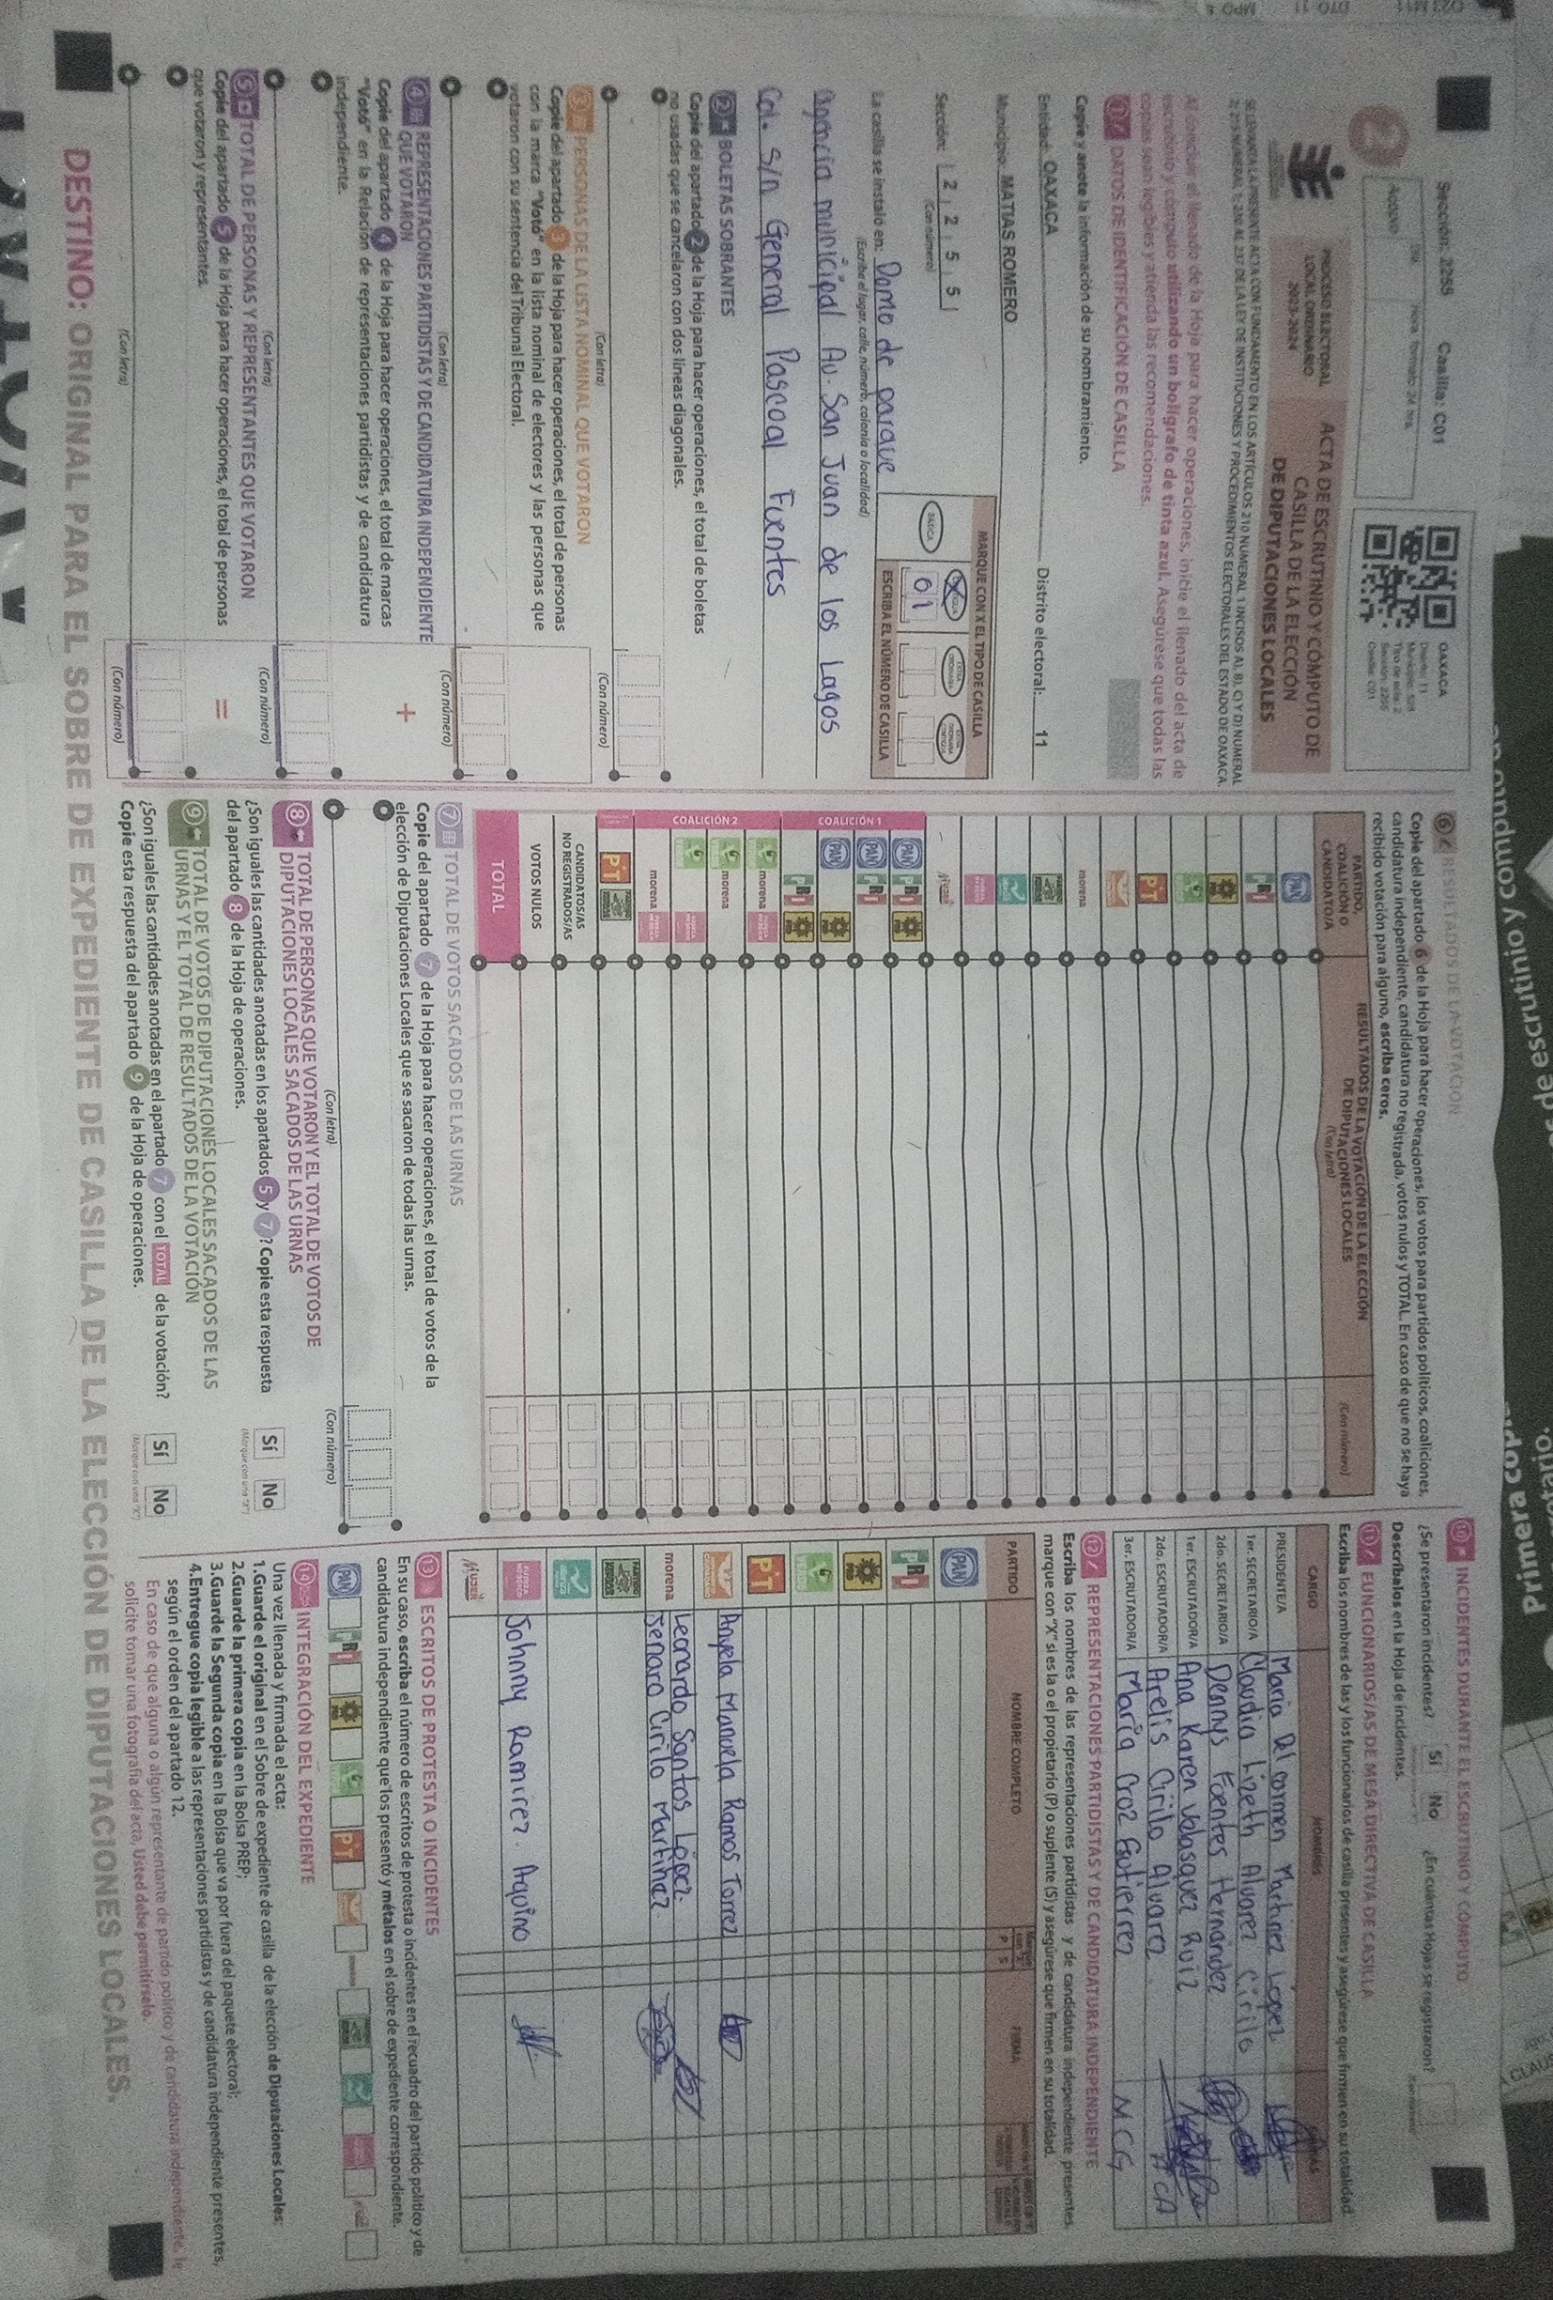 Sección: 2255 Casilla: C01
Acopio
Día
Hora formato 24 hrs.
OAXACA
Distrito: 11
Sección: 2255
Casilla: C01
PROCESO ELECTORAL
LOCAL ORDINARIO
2023-2024
ACTA DE ESCRUTINIO Y CÓMPUTO DE
CASILLA DE LA ELECCIÓN
DE DIPUTACIONES LOCALES
SE LEVANTA LA PRESENTE ACTA CON FUNDAMENTO EN LOS ARTÍCULOS 210 NUMERAL 1 INCISOS A), B), C) Y D) NUMERAL
2; 215 NUMERAL 1; 236 AL 237 DE LA LEY DE INSTITUCIONES Y PROCEDIMIENTOS ELECTORALES DEL ESTADO DE OAXACA.
Al concluir el llenado de la Hoja para hacer operaciones, inicie el llenado del acta de
escrutinio y cómputo utilizando un bolígrafo de tinta azul. Asegúrese que todas las
copias sean legibles y atienda las recomendaciones.
1 DATOS DE IDENTIFICACIÓN DE CASILLA
Copie y anote la información de su nombramiento.
Entidad: OAXACA Distrito electoral: 11
Municipio: MATIAS ROMERO
Sección: 2 2 5 5
(Con número)
MARQUE CON X EL TIPO DE CASILLA
BÁSICA
01
ESCRIBA EL NÚMERO DE CASILLA
La casilla se instaló en: Domo de parque
(Escriba el lugar, calle, número, colonia o localidad)
agencia municipal Av. San Juan de los Lagos
Col. S/n General Pascoal Fuentes
2 BOLETAS SOBRANTES
Copie del apartado 2 de la Hoja para hacer operaciones, el total de boletas
no usadas que se cancelaron con dos líneas diagonales.
(Con letra) (Con número)
3 PERSONAS DE LA LISTA NOMINAL QUE VOTARON
Copie del apartado 3 de la Hoja para hacer operaciones, el total de personas
con la marca "Votó" en la lista nominal de electores y las personas que
votaron con su sentencia del Tribunal Electoral.
(Con letra) (Con número)
4 REPRESENTACIONES PARTIDISTAS Y DE CANDIDATURA INDEPENDIENTE
QUE VOTARON
Copie del apartado 4 de la Hoja para hacer operaciones, el total de marcas
"Votó" en la Relación de representaciones partidistas y de candidatura
independiente.
+
(Con letra) (Con número)
5 TOTAL DE PERSONAS Y REPRESENTANTES QUE VOTARON
Copie del apartado 5 de la Hoja para hacer operaciones, el total de personas
que votaron y representantes.
=
(Con letra) (Con número)
6 RESULTADOS DE LA VOTACIÓN
Copie del apartado 6 de la Hoja para hacer operaciones, los votos para partidos políticos, coaliciones,
candidatura independiente, candidatura no registrada, votos nulos y TOTAL. En caso de que no se haya
recibido votación para alguno, escriba ceros.
PARTIDO,
COALICIÓN O
CANDIDATO/A
RESULTADOS DE LA VOTACIÓN DE LA ELECCIÓN
DE DIPUTACIONES LOCALES
(Con letra)
(Con número)
PAN
PRI
PRD
PT
morena
COALICIÓN 1
PAN PRI PRD
PAN PRI
PAN PRD
PRI PRD
COALICIÓN 2
morena
morena
morena
PT
CANDIDATOS/AS
NO REGISTRADOS/AS
VOTOS NULOS
TOTAL
7 TOTAL DE VOTOS SACADOS DE LAS URNAS
Copie del apartado 7 de la Hoja para hacer operaciones, el total de votos de la
elección de Diputaciones Locales que se sacaron de todas las urnas.
(Con letra) (Con número)
8 TOTAL DE PERSONAS QUE VOTARON Y EL TOTAL DE VOTOS DE
DIPUTACIONES LOCALES SACADOS DE LAS URNAS
¿Son iguales las cantidades anotadas en los apartados 5 y 7? Copie esta respuesta
del apartado 8 de la Hoja de operaciones.
Sí No
(Marque con una "X")
9 TOTAL DE VOTOS DE DIPUTACIONES LOCALES SACADOS DE LAS
URNAS Y EL TOTAL DE RESULTADOS DE LA VOTACIÓN
¿Son iguales las cantidades anotadas en el apartado 7 con el TOTAL de la votación?
Copie esta respuesta del apartado 9 de la Hoja de operaciones.
Sí No
(Marque con una "X")
10 INCIDENTES DURANTE EL ESCRUTINIO Y CÓMPUTO
¿Se presentaron incidentes? Sí No ¿En cuántas Hojas se registraron?
Descríbalos en la Hoja de incidentes.
11 FUNCIONARIOS/AS DE MESA DIRECTIVA DE CASILLA
Escriba los nombres de las y los funcionarios de casilla presentes y asegúrese que firmen en su totalidad.
CARGO NOMBRES FIRMAS
PRESIDENTE/A Maria Del carmen Martinez López
1er. SECRETARIO/A Claudia Lizeth Alvarez Cirilo
2do. SECRETARIO/A Dennys Fuentes Hernandez
1er. ESCRUTADOR/A Ana Karen Velasquez Ruiz
2do. ESCRUTADOR/A Arelis Cirilo Alvarez
3er. ESCRUTADOR/A Maria Cruz Gutierrez M C G
12 REPRESENTACIONES PARTIDISTAS Y DE CANDIDATURA INDEPENDIENTE
Escriba los nombres de las representaciones partidistas y de candidatura independiente presentes,
marque con "X" si es la o el propietario (P) o suplente (S) y asegúrese que firmen en su totalidad.
PARTIDO NOMBRE COMPLETO P S FIRMA
PAN
PRI
PRD
PT
Anyela Manuela Ramos Torrez
morena Leonardo Santos López.
Jenaro Cirilo Martinez.
Johnny Ramirez. Aquino
MUJER
13 ESCRITOS DE PROTESTA O INCIDENTES
En su caso, escriba el número de escritos de protesta o incidentes en el recuadro del partido político y de
candidatura independiente que los presentó y métalos en el sobre de expediente correspondiente.
PAN PRI PRD PT
14 INTEGRACIÓN DEL EXPEDIENTE
Una vez llenada y firmada el acta:
1.Guarde el original en el Sobre de expediente de casilla de la elección de Diputaciones Locales;
2.Guarde la primera copia en la Bolsa PREP;
3.Guarde la Segunda copia en la Bolsa que va por fuera del paquete electoral;
4.Entregue copia legible a las representaciones partidistas y de candidatura independiente presentes,
según el orden del apartado 12.
En caso de que alguna o algún representante de partido político y de candidatura independiente, le
solicite tomar una fotografía del acta, Usted debe permitírselo.
DESTINO: ORIGINAL PARA EL SOBRE DE EXPEDIENTE DE CASILLA DE LA ELECCIÓN DE DIPUTACIONES LOCALES.
Primera copia
de escrutinio y cómputo